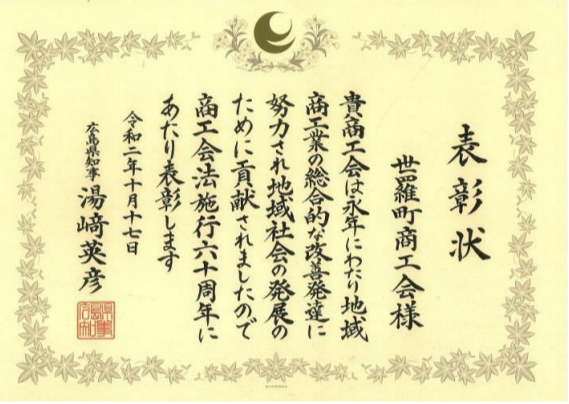 表彰状
世羅町商工会様
貴商工会は永年にわたり地域
商工業の総合的な改善発達に
努力され地域社会の発展の
ために貢献されましたので
商工会法施行六十周年に
あたり表彰します
令和二年十月十七日
広島県知事 湯﨑英彦